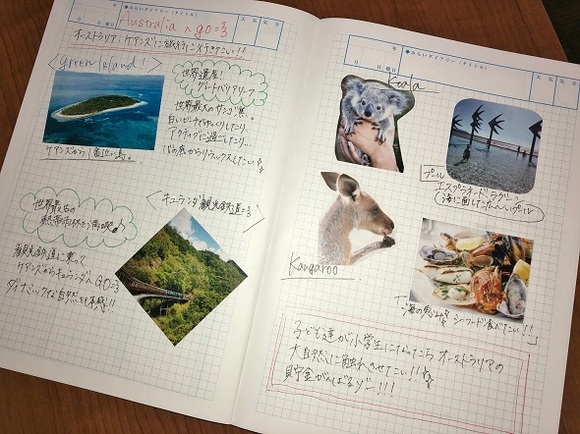 みらいダイアリー(タイトル)
月 日 曜日
天気
Australia へ GO=3
オーストラリア:ケアンズに旅行に行きたい!!
Green Island!
世界遺産!
グレートバリアリーフ
世界最大のサンゴ礁。
白いビーチでゆっくりしたり、
アクティブに過ごしたり…
心の底からリラックスしたい
ケアンズから1番近い島。
世界最古の
熱帯雨林を満喫♪
キュランダ観光鉄道=3
観光鉄道に乗って
ケアンズからキュランダへ GO=3
ダイナミックな自然を体感!!
みらいダイアリー(タイトル)
月 日 曜日
天気
Koala
プール
エスプラネードラグーン
海に面したでっかいプール
Kangaroo
海の幸 シーフード食べたい!!
子ども達が小学生になったら オーストラリアの
大自然に触れさせたい!!
貯金がんばるゾー!!!